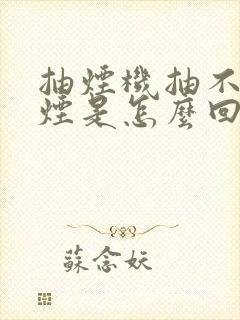 抽煙機抽不
煙是怎麼回
蘇念妖